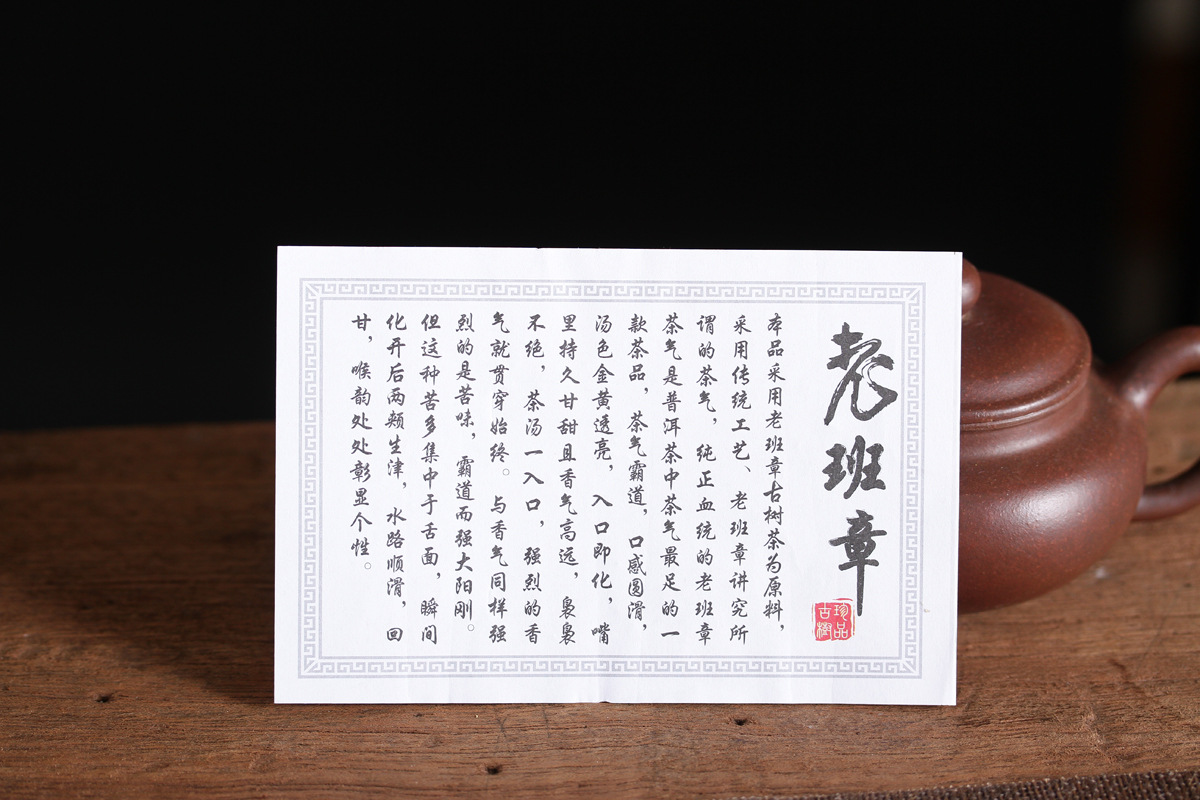 老班章
珍品
古樹
本品采用老班章古树茶为原料，
采用传统工艺、老班章讲究所
谓的茶气，纯正血统的老班章
茶气是普洱茶中茶气最足的一
款茶品，茶气霸道，口感圆滑，
汤色金黄透亮，入口即化，嘴
里持久甘甜且香气高远，袅袅
不绝，茶汤一入口，强烈的香
气就贯穿始终。与香气同样强
烈的是苦味，霸道而强大阳刚。
但这种苦多集中于舌面，瞬间
化开后两颊生津，水路顺滑，回
甘，喉韵处处彰显个性。